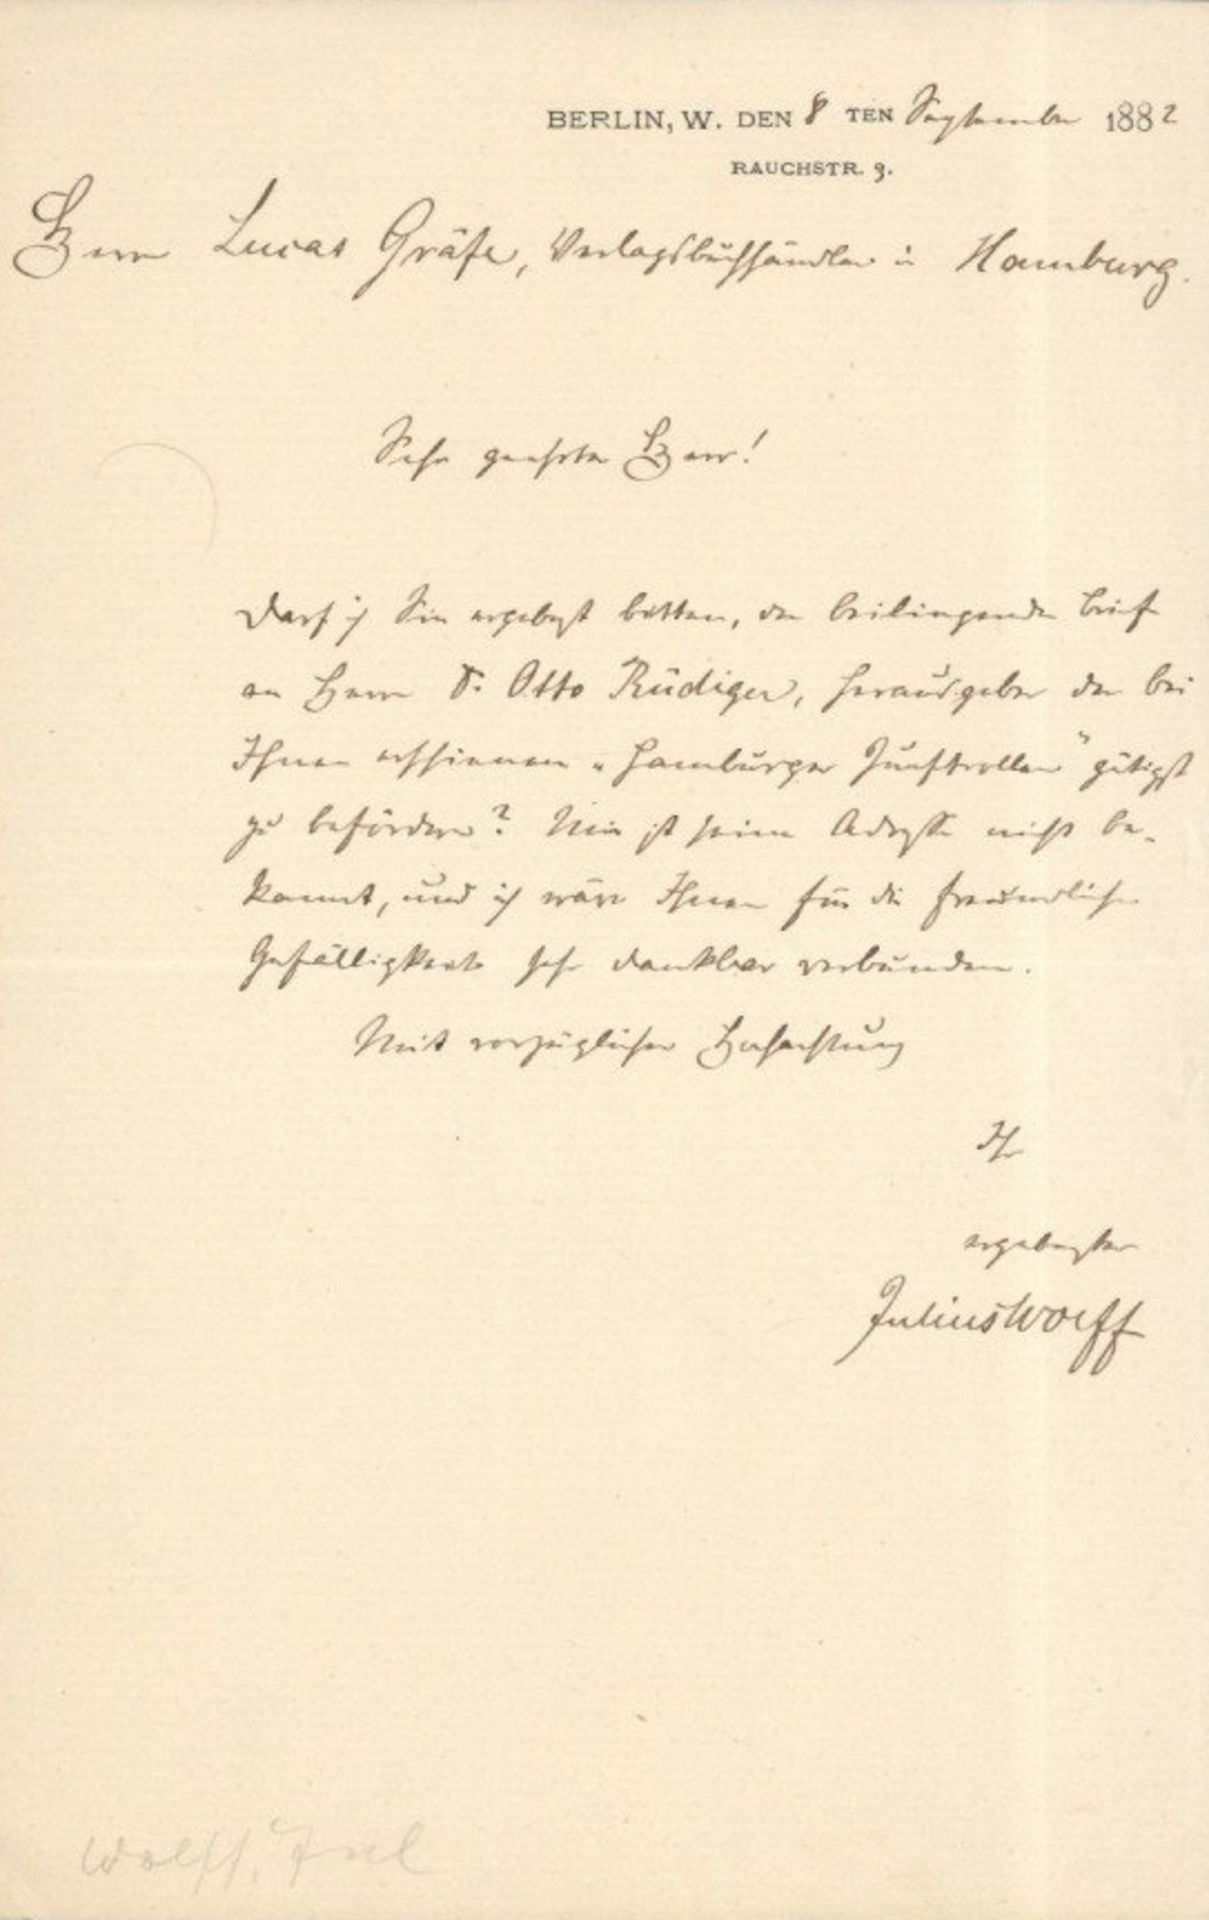 BERLIN, W. DEN 8 TEN September 1882
RAUCHSTR. 9.
Herrn Lucas Gräfe, Verlagsbuchhändler in Hamburg.
Sehr geehrter Herr!
Darf ich Sie ergebenst bitten, den beiliegenden Brief
an Herrn Dr. Otto Rüdiger, Herausgeber der bei
Ihnen erschienenen „Hamburger Zunftrollen" gütigst
zu befördern? Mir ist seine Adresse nicht be-
kannt, und ich wäre Ihnen für die freundliche
Gefälligkeit sehr dankbar verbunden.
Mit vorzüglicher Hochachtung
Ihr
ergebenster
Julius Wolff
Wolff, Jul